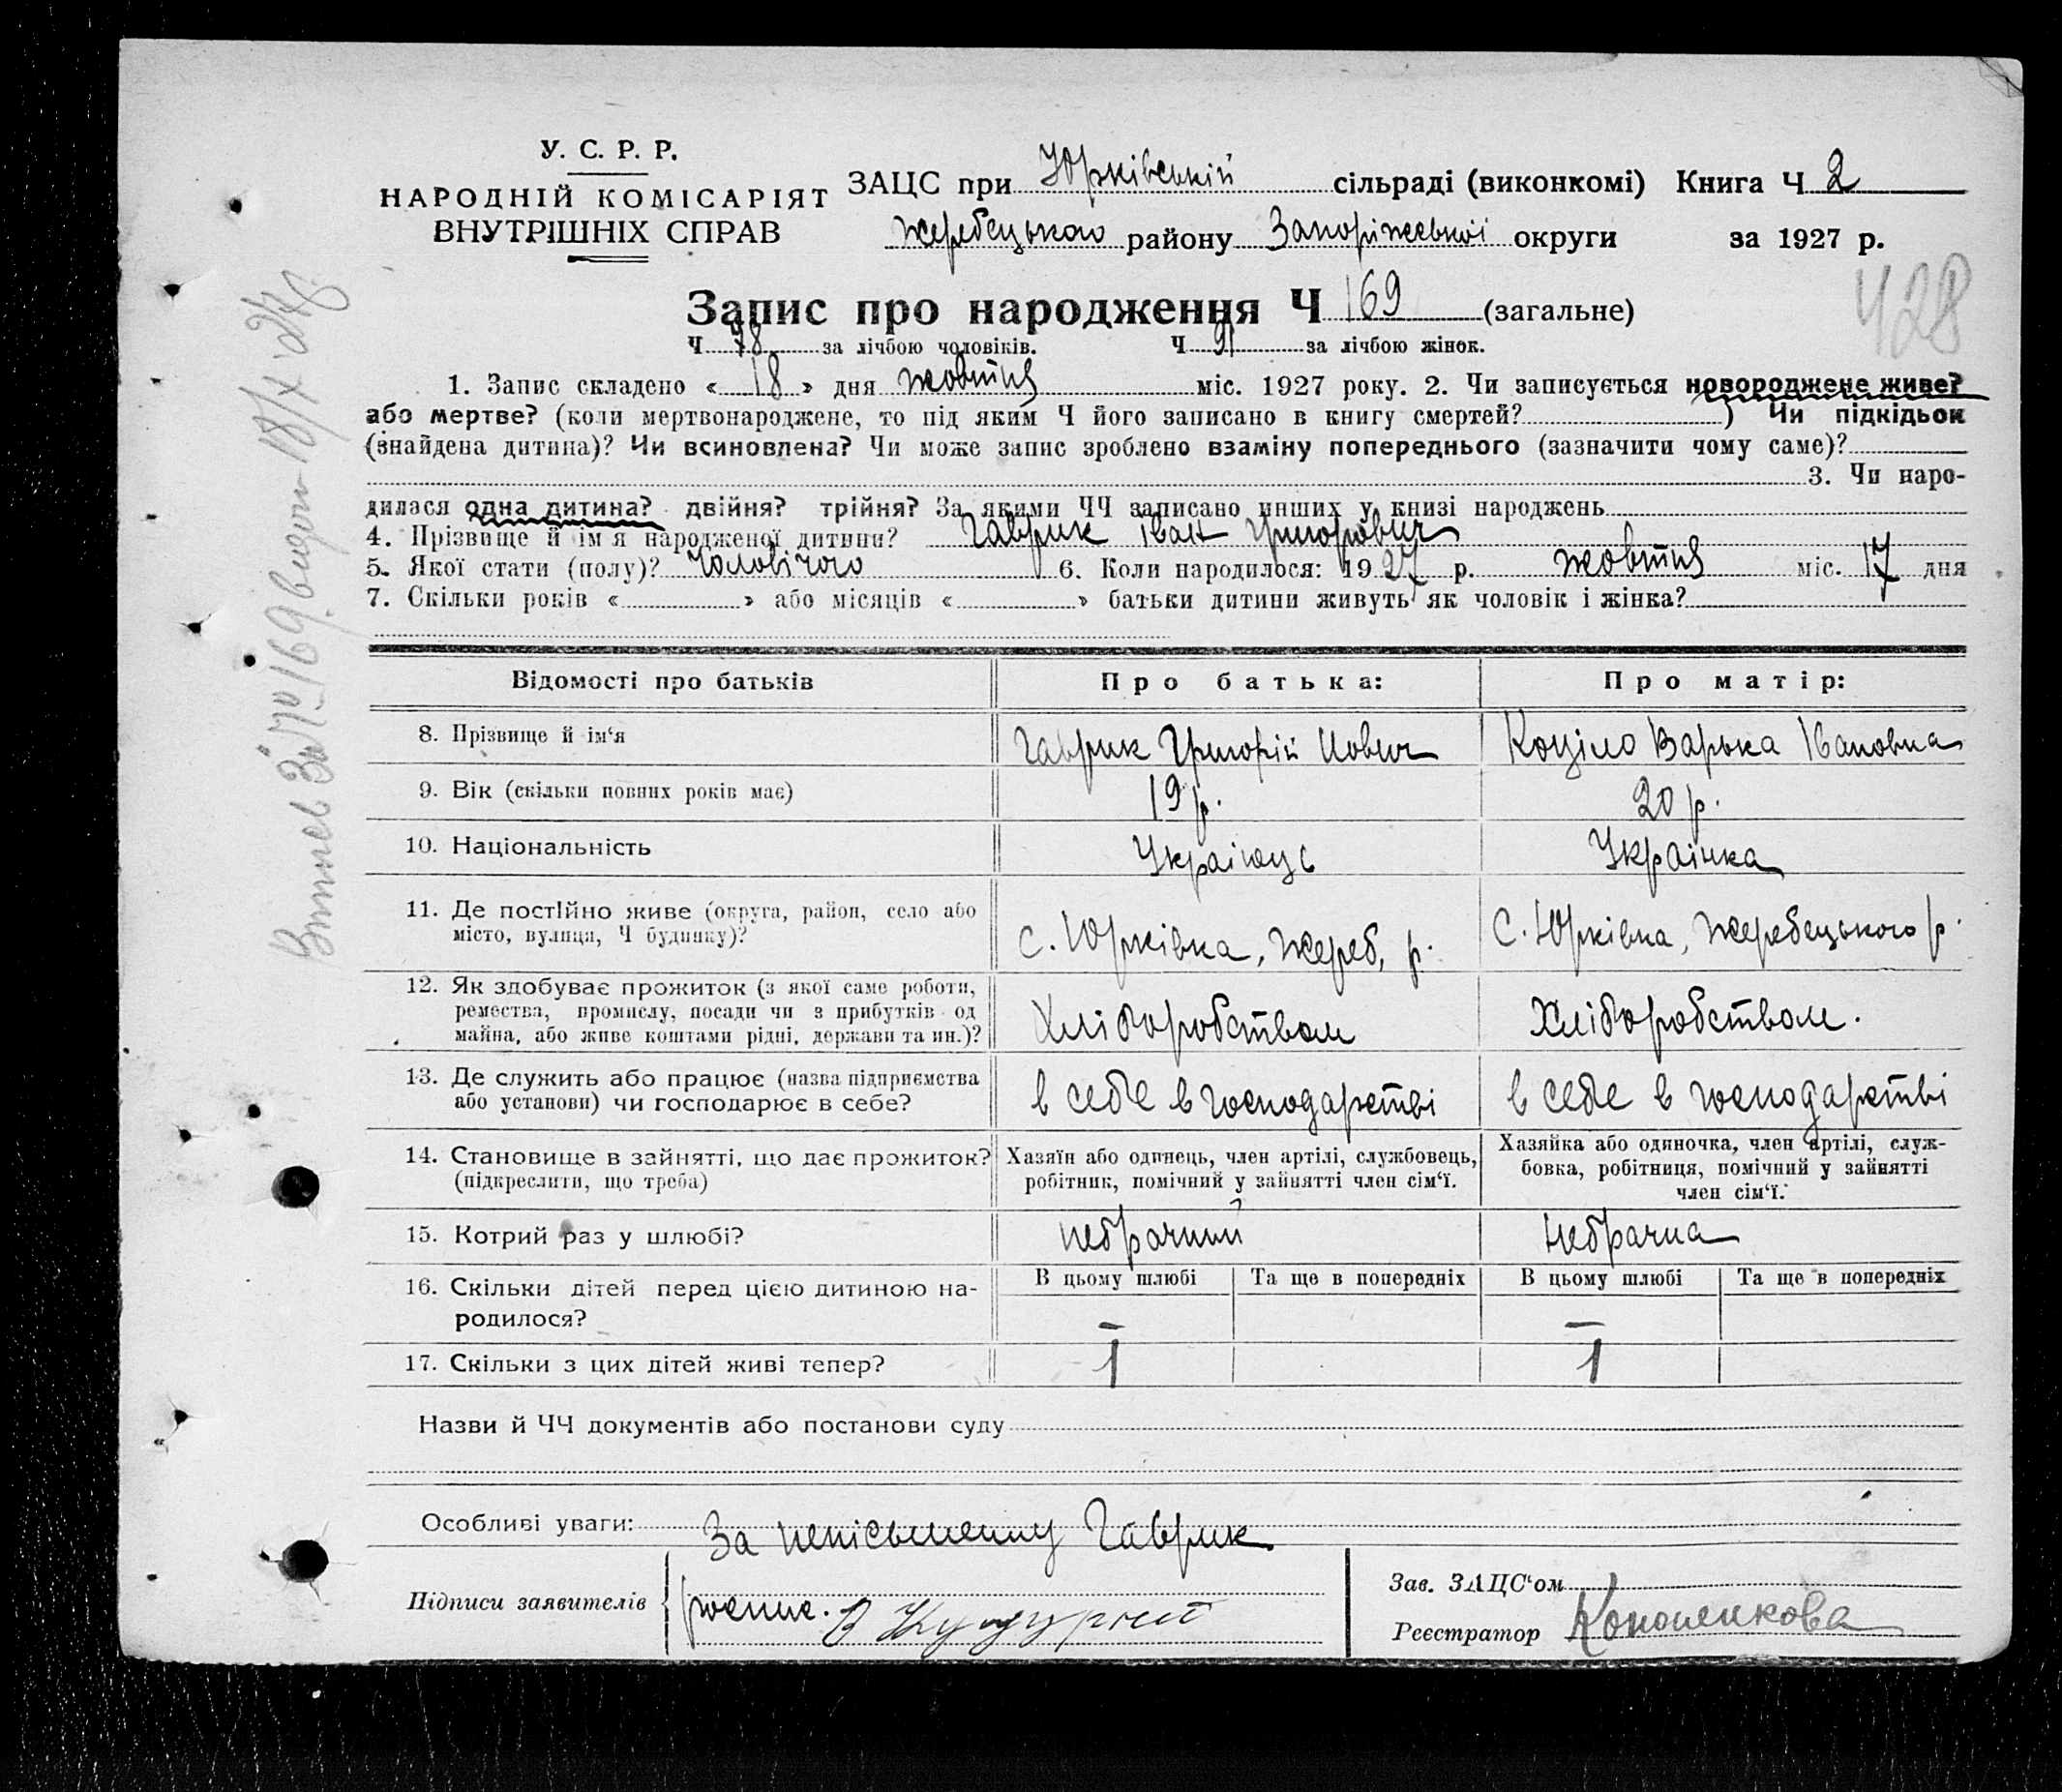 У. С. Р. Р.
НАРОДНІЙ КОМІСАРІЯТ
ВНУТРІШНІХ СПРАВ
ЗАЦС при Юрківській сільраді (виконкомі) Книга Ч 2
Жеребецького району Запоріжської округи за 1927 р.
428
Запис про народження Ч 169 (загальне)
Ч 78 за лічбою чоловіків. Ч 91 за лічбою жінок.
1. Запис складено « 18 » дня жовтня міс. 1927 року. 2. Чи записується новороджене живе?
або мертве? (коли мертвонароджене, то під яким Ч його записано в книгу смертей? ) Чи підкідьок
(знайдена дитина)? Чи всиновлена? Чи може запис зроблено взаміну попереднього (зазначити чому саме)?
3. Чи наро-
дилася одна дитина? двійня? трійня? За якими ЧЧ записано инших у книзі народжень
4. Прізвище й ім'я народженої дитини? Гаврик Іван Григорович
5. Якої стати (полу)? Чоловічого 6. Коли народилося: 1927 р. жовтня міс. 17 дня
7. Скільки років « » або місяців « » батьки дитини живуть як чоловік і жінка?
Відомості про батьків Про батька: Про матір:
8. Прізвище й ім'я Гаврик Григорій Йович Коціло Варька Івановна
9. Вік (скільки повних років має) 19 р. 20 р.
10. Національність Українець Українка
11. Де постійно живе (округа, район, село або
місто, вулиця, Ч будинку)? с. Юрківка, Жереб. р. с. Юрківка, Жеребецького р.
12. Як здобуває прожиток (з якої саме роботи,
ремества, промислу, посади чи з прибутків од
майна, або живе коштами рідні, держави та ин.)? Хліборобством Хліборобством.
13. Де служить або працює (назва підприємства
або установи) чи господарює в себе? в себе в господарстві в себе в господарстві
14. Становище в зайнятті, що дає прожиток?
(підкреслити, що треба)
Хазяїн або одинець, член артілі, службовець,
робітник, помічний у зайнятті член сім'ї.
Хазяйка або одиночка, член артілі, служ-
бовка, робітниця, помічний у зайнятті
член сім'ї.
15. Котрий раз у шлюбі? небрачний небрачна
16. Скільки дітей перед цією дитиною на-
родилося?
В цьому шлюбі Та ще в попередніх В цьому шлюбі Та ще в попередніх
— —
17. Скільки з цих дітей живі тепер? 1 1
Назви й ЧЧ документів або постанови суду
Особливі уваги: За непісьменну Гаврик
Підписи заявителів роспис.
Зав. ЗАЦС'ом
Реєстратор Кононенкова